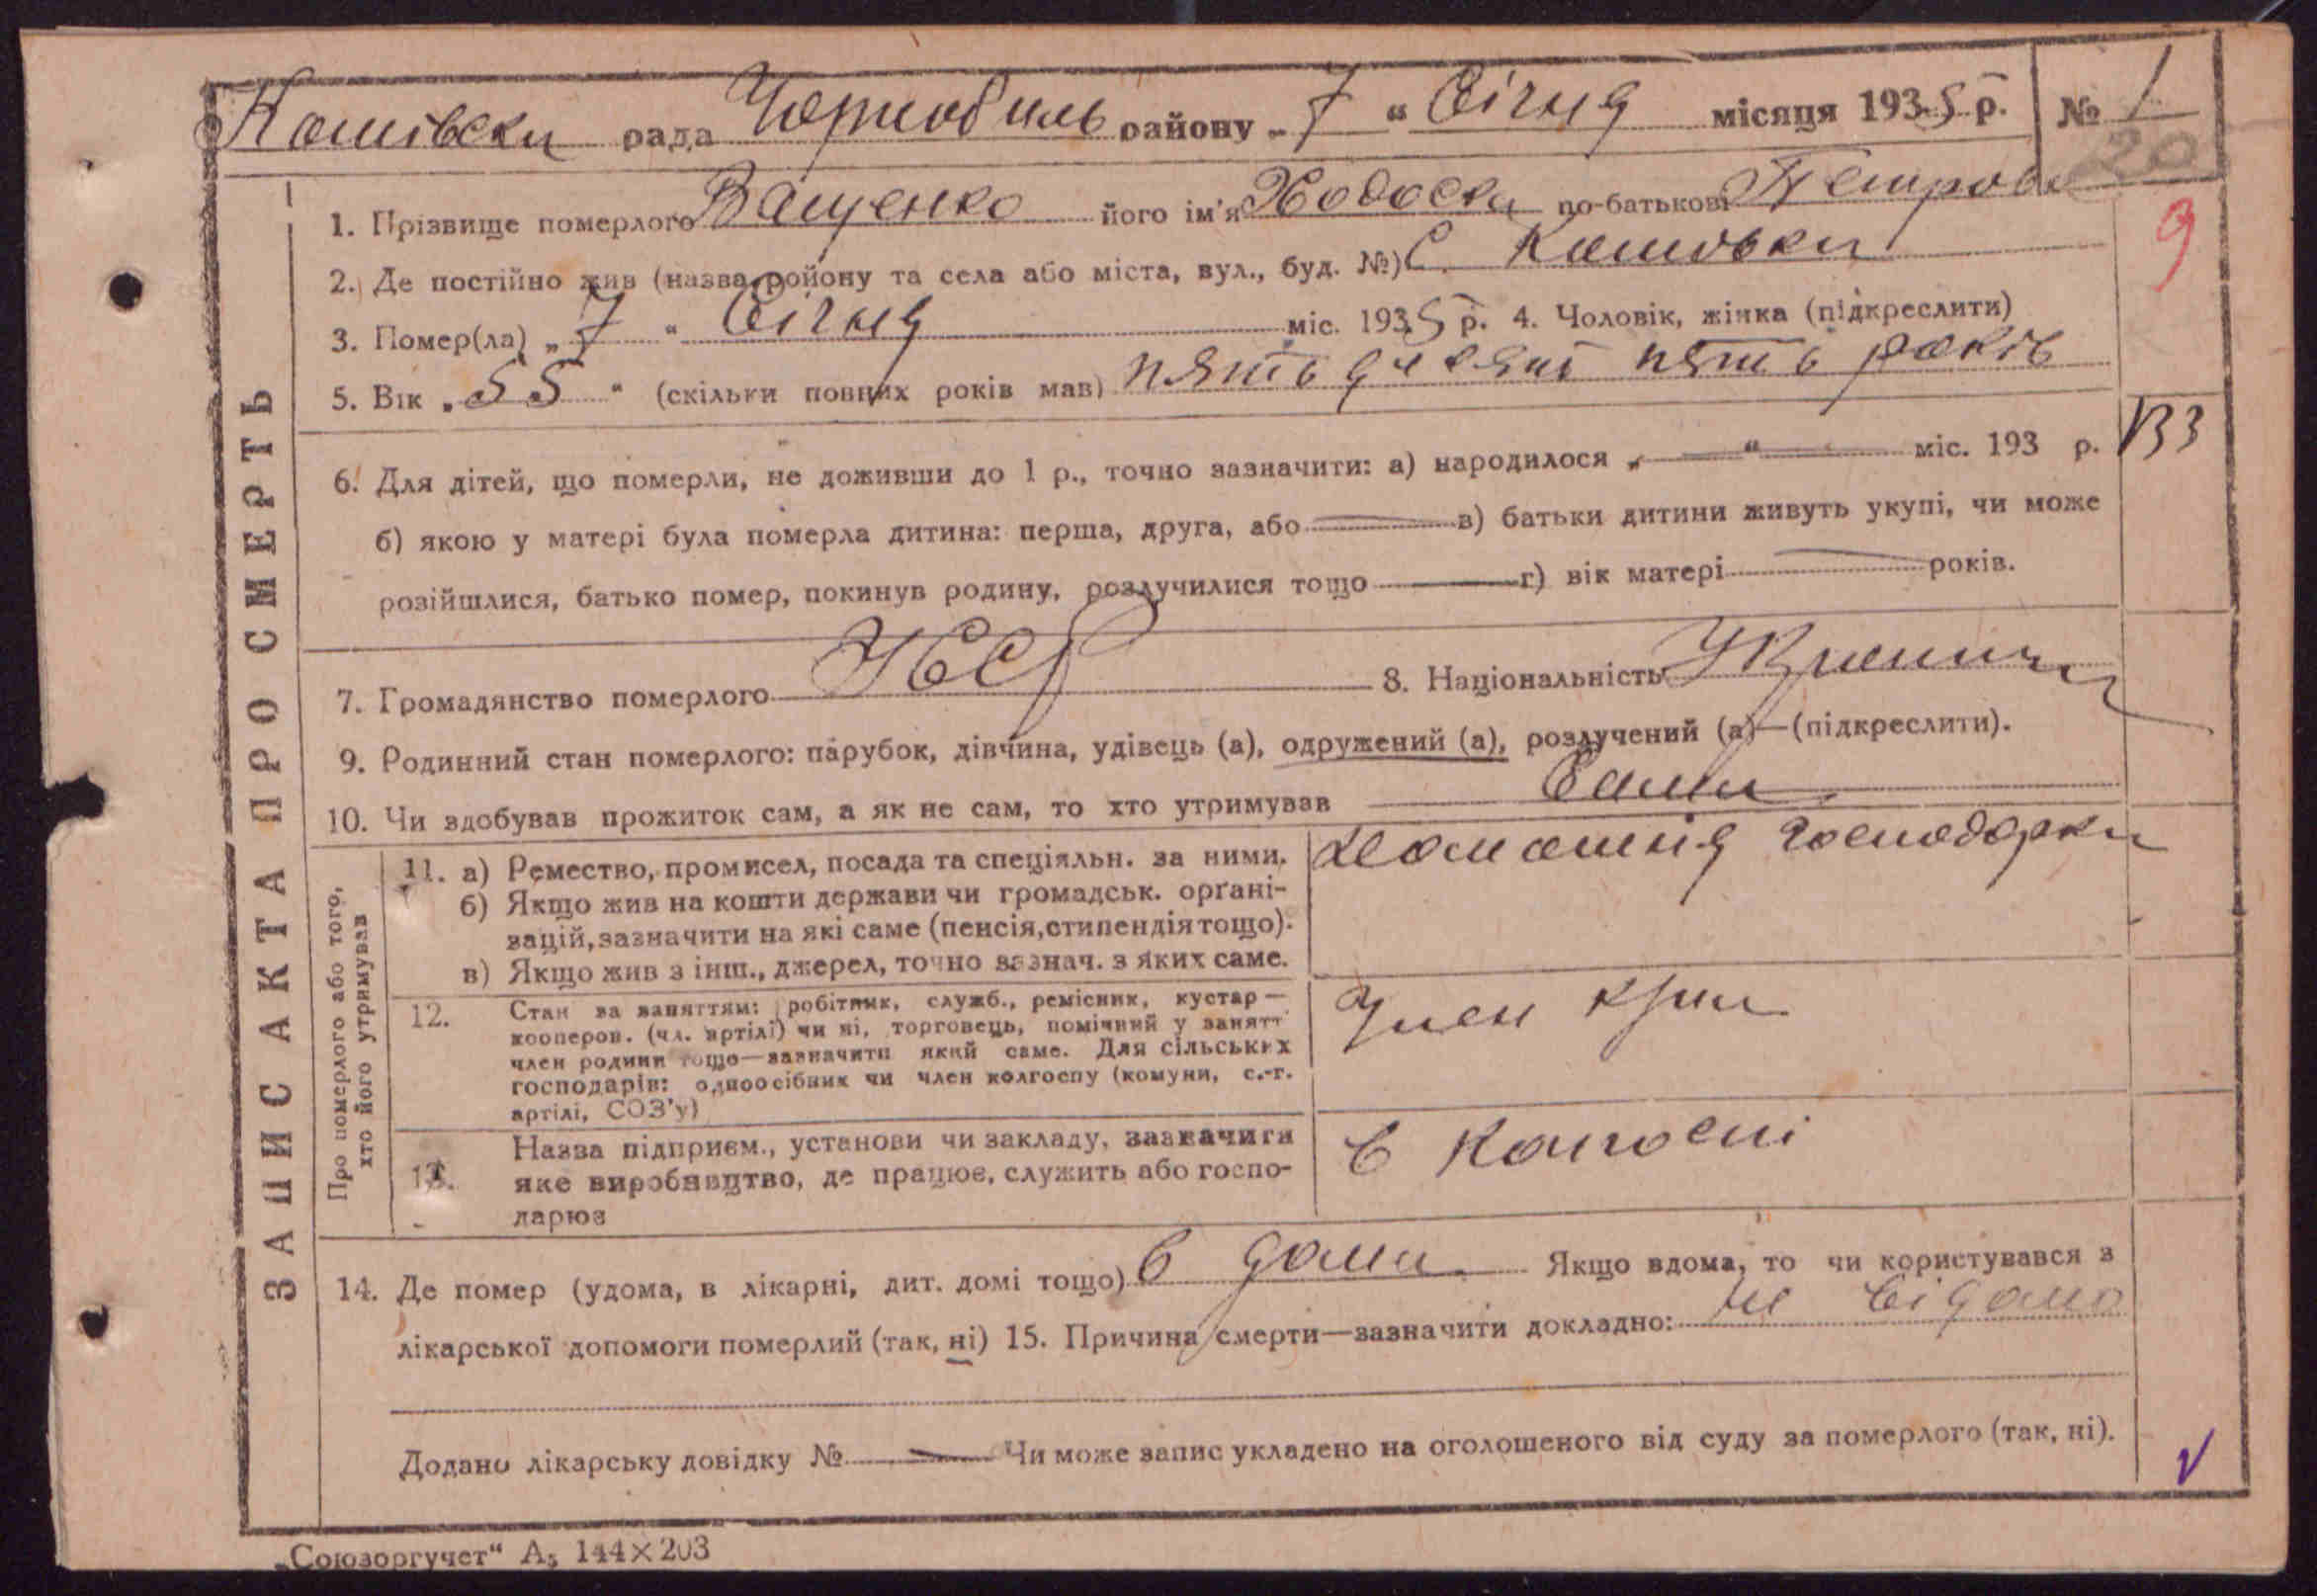 Кошівська рада Чорнобиль району „ 7 “ Січня місяця 1935 р. № 1
20
1. Прізвище померлого Ващенко його ім'я Ходоска по-батькові Петрова
9
2. Де постійно жив (назва району та села або міста, вул., буд. №) С. Кошовка
3. Помер(ла) „ 7 “ Січня міс. 1935 р. 4. Чоловік, жінка (підкреслити)
5. Вік „ 55 “ (скільки повних років мав) пять десят пять років
133
6. Для дітей, що померли, не доживши до 1 р., точно зазначити: а) народилося „ — “ — міс. 193 р.
б) якою у матері була померла дитина: перша, друга, або — в) батьки дитини живуть укупі, чи може
розійшлися, батько помер, покинув родину, розлучилися тощо — г) вік матері — років.
7. Громадянство померлого УССР 8. Національність Украинка
9. Родинний стан померлого: парубок, дівчина, удівець (а), одружений (а), розлучений (а)—(підкреслити).
10. Чи здобував прожиток сам, а як не сам, то хто утримував Сама
ЗАПИС АКТА ПРО СМЕРТЬ
Про померлого або того,
хто його утримував
11. а) Ремество, промисел, посада та спеціяльн. за ними.
б) Якщо жив на кошти держави чи громадськ. орґані-
зацій, зазначити на які саме (пенсія, стипендія тощо).
в) Якщо жив з інш., джерел, точно зазнач. з яких саме.
Домошня господорка
12. Стан за заняттям: робітник, служб., ремісник, кустар —
кооперов. (чл. артілі) чи ні, торговець, помічний у занятт
член родини тощо—зазначити який саме. Для сільських
господарів: одноосібник чи член колгоспу (комуни, с.-г.
артілі, СОЗ'у)
Член
13. Назва підприєм., установи чи закладу, зазначити
яке виробництво, де працює, служить або госпо-
дарює
в колгоспі
14. Де помер (удома, в лікарні, дит. домі тощо) в дома Якщо вдома, то чи користувався з
лікарської допомоги померлий (так, ні) 15. Причина смерти—зазначити докладно: не відомо
Додано лікарську довідку № — Чи може запис укладено на оголошеного від суду за померлого (так, ні).
„Союзоргучет“ А₅ 144×203